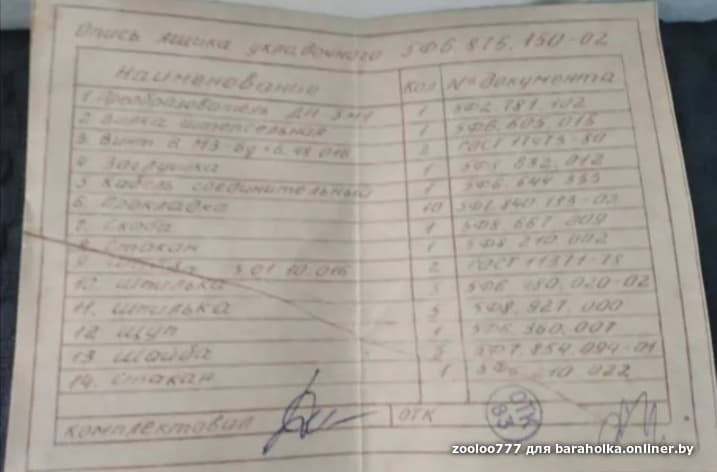 Опись ящика укладочного 5Ф6.875.150-02
Наименование Кол № документа
1. Преобразователь ДН 3М1 1 5Ф2.781.102
2. Вилка штепсельная 1 5Ф6.605.015
3. Винт В. М3-6g 6.48.016 2 ГОСТ 17475-80
4. Заглушка 1 5Ф8.632.012
5. Кабель соединительный 1 5Ф6.644.353
6. Прокладка 10 5Ф7.840.193-02
7. Скоба 1 5Ф8.667.009
8. Стакан 1 5Ф8.210.002
9. 3.01.10.016 2 ГОСТ 11371-78
10. Шпилька 3 020-02
11. Шпилька 3 5Ф8.927.000
12. Щуп 1 5Ф6.360.007
13. Шайба 2 5Ф7.854.094-01
14. Стакан 1 022
Комплектовал ОТК
ОТК 83
zooloo777 для baraholka.onliner.by